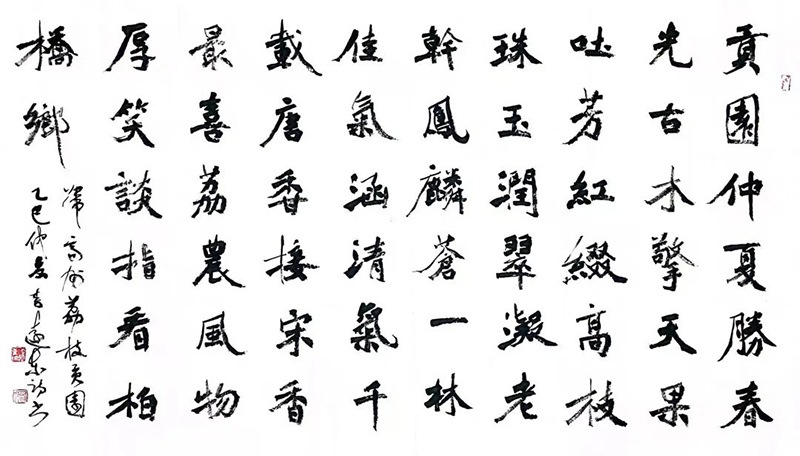 貢園仲夏勝春
光古木擎天果
吐芳紅綴高枝
珠玉潤翠凝老
幹鳳麟蒼一林
佳氣涵清氣千
載唐香接宋香
最喜荔農風物
厚笑談指看柏
橋鄉
高州荔枝貢園
乙巳仲夏